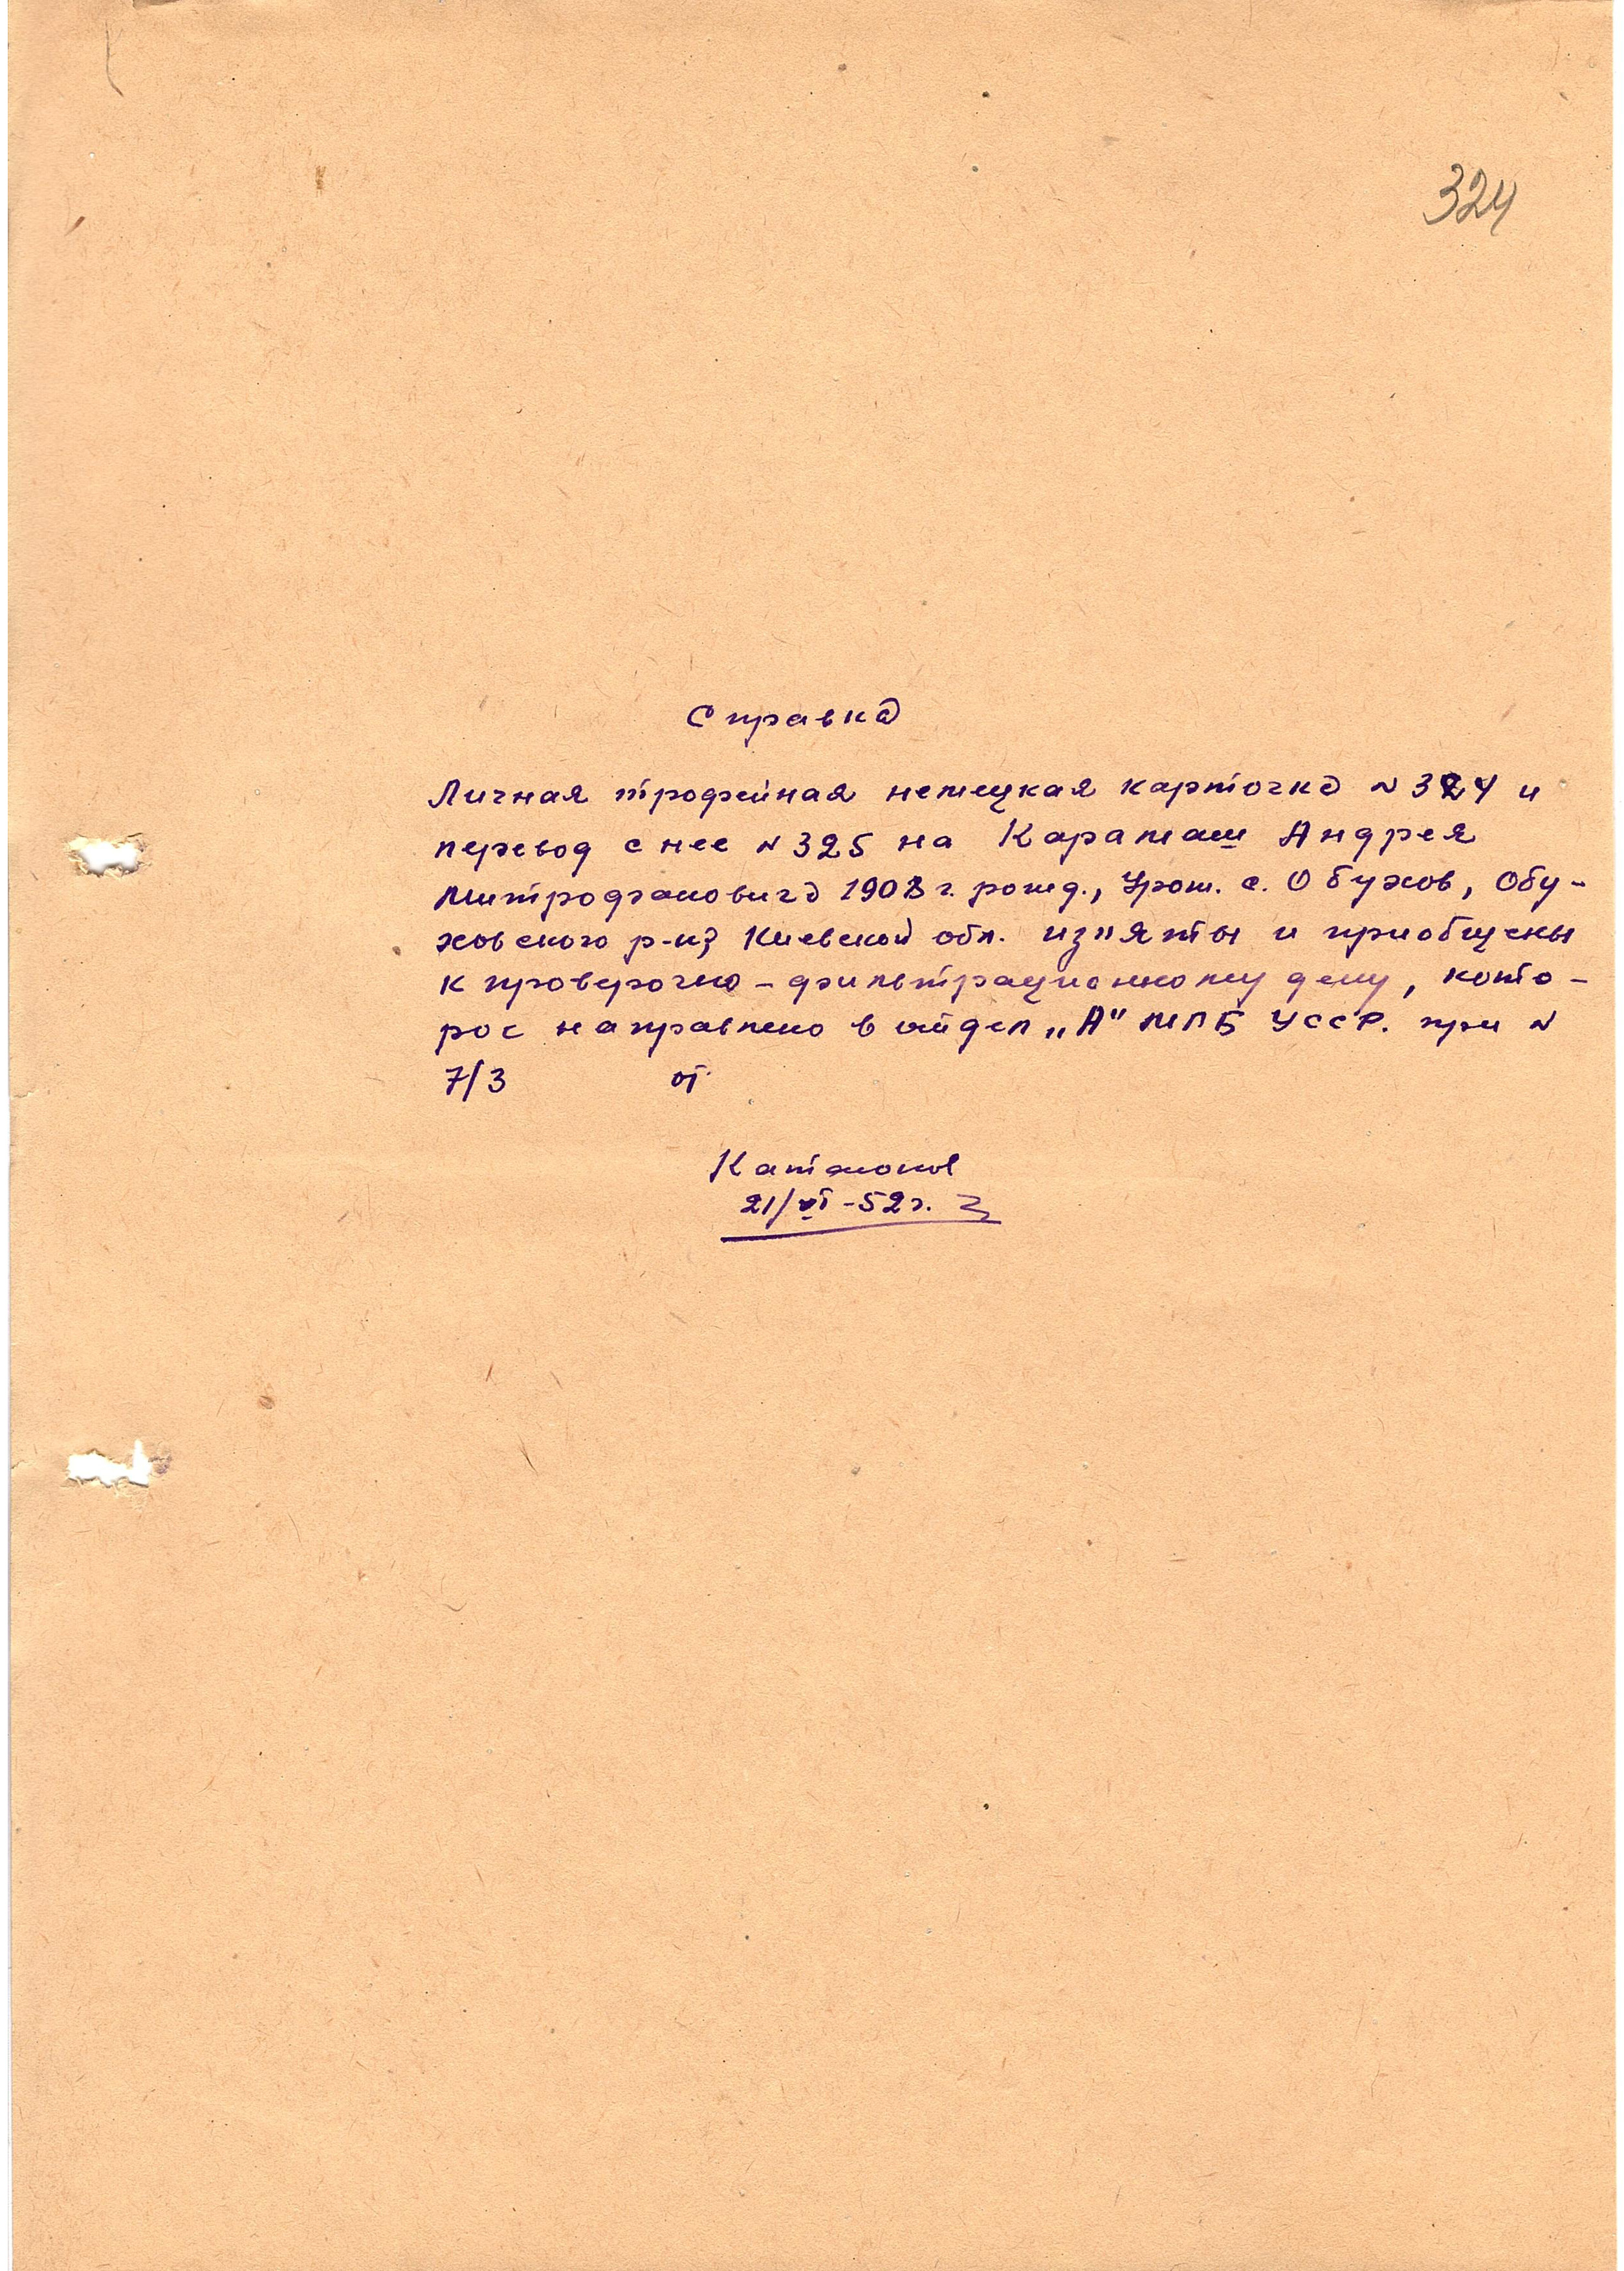 324
Справка
Личная трофейная немецкая карточка N 324 и
перевод с нее N 325 на Карамаш Андрея
Митрофановича 1908 г. рожд., Урож. с. Обухов, Обу-
ховского р-на Киевской обл. из"яты и приобщены
к проверочно-фильтрационному делу, кото-
рое направлено в отдел „А" МГБ УССР. при N
7/3 от
21/VI-52г.